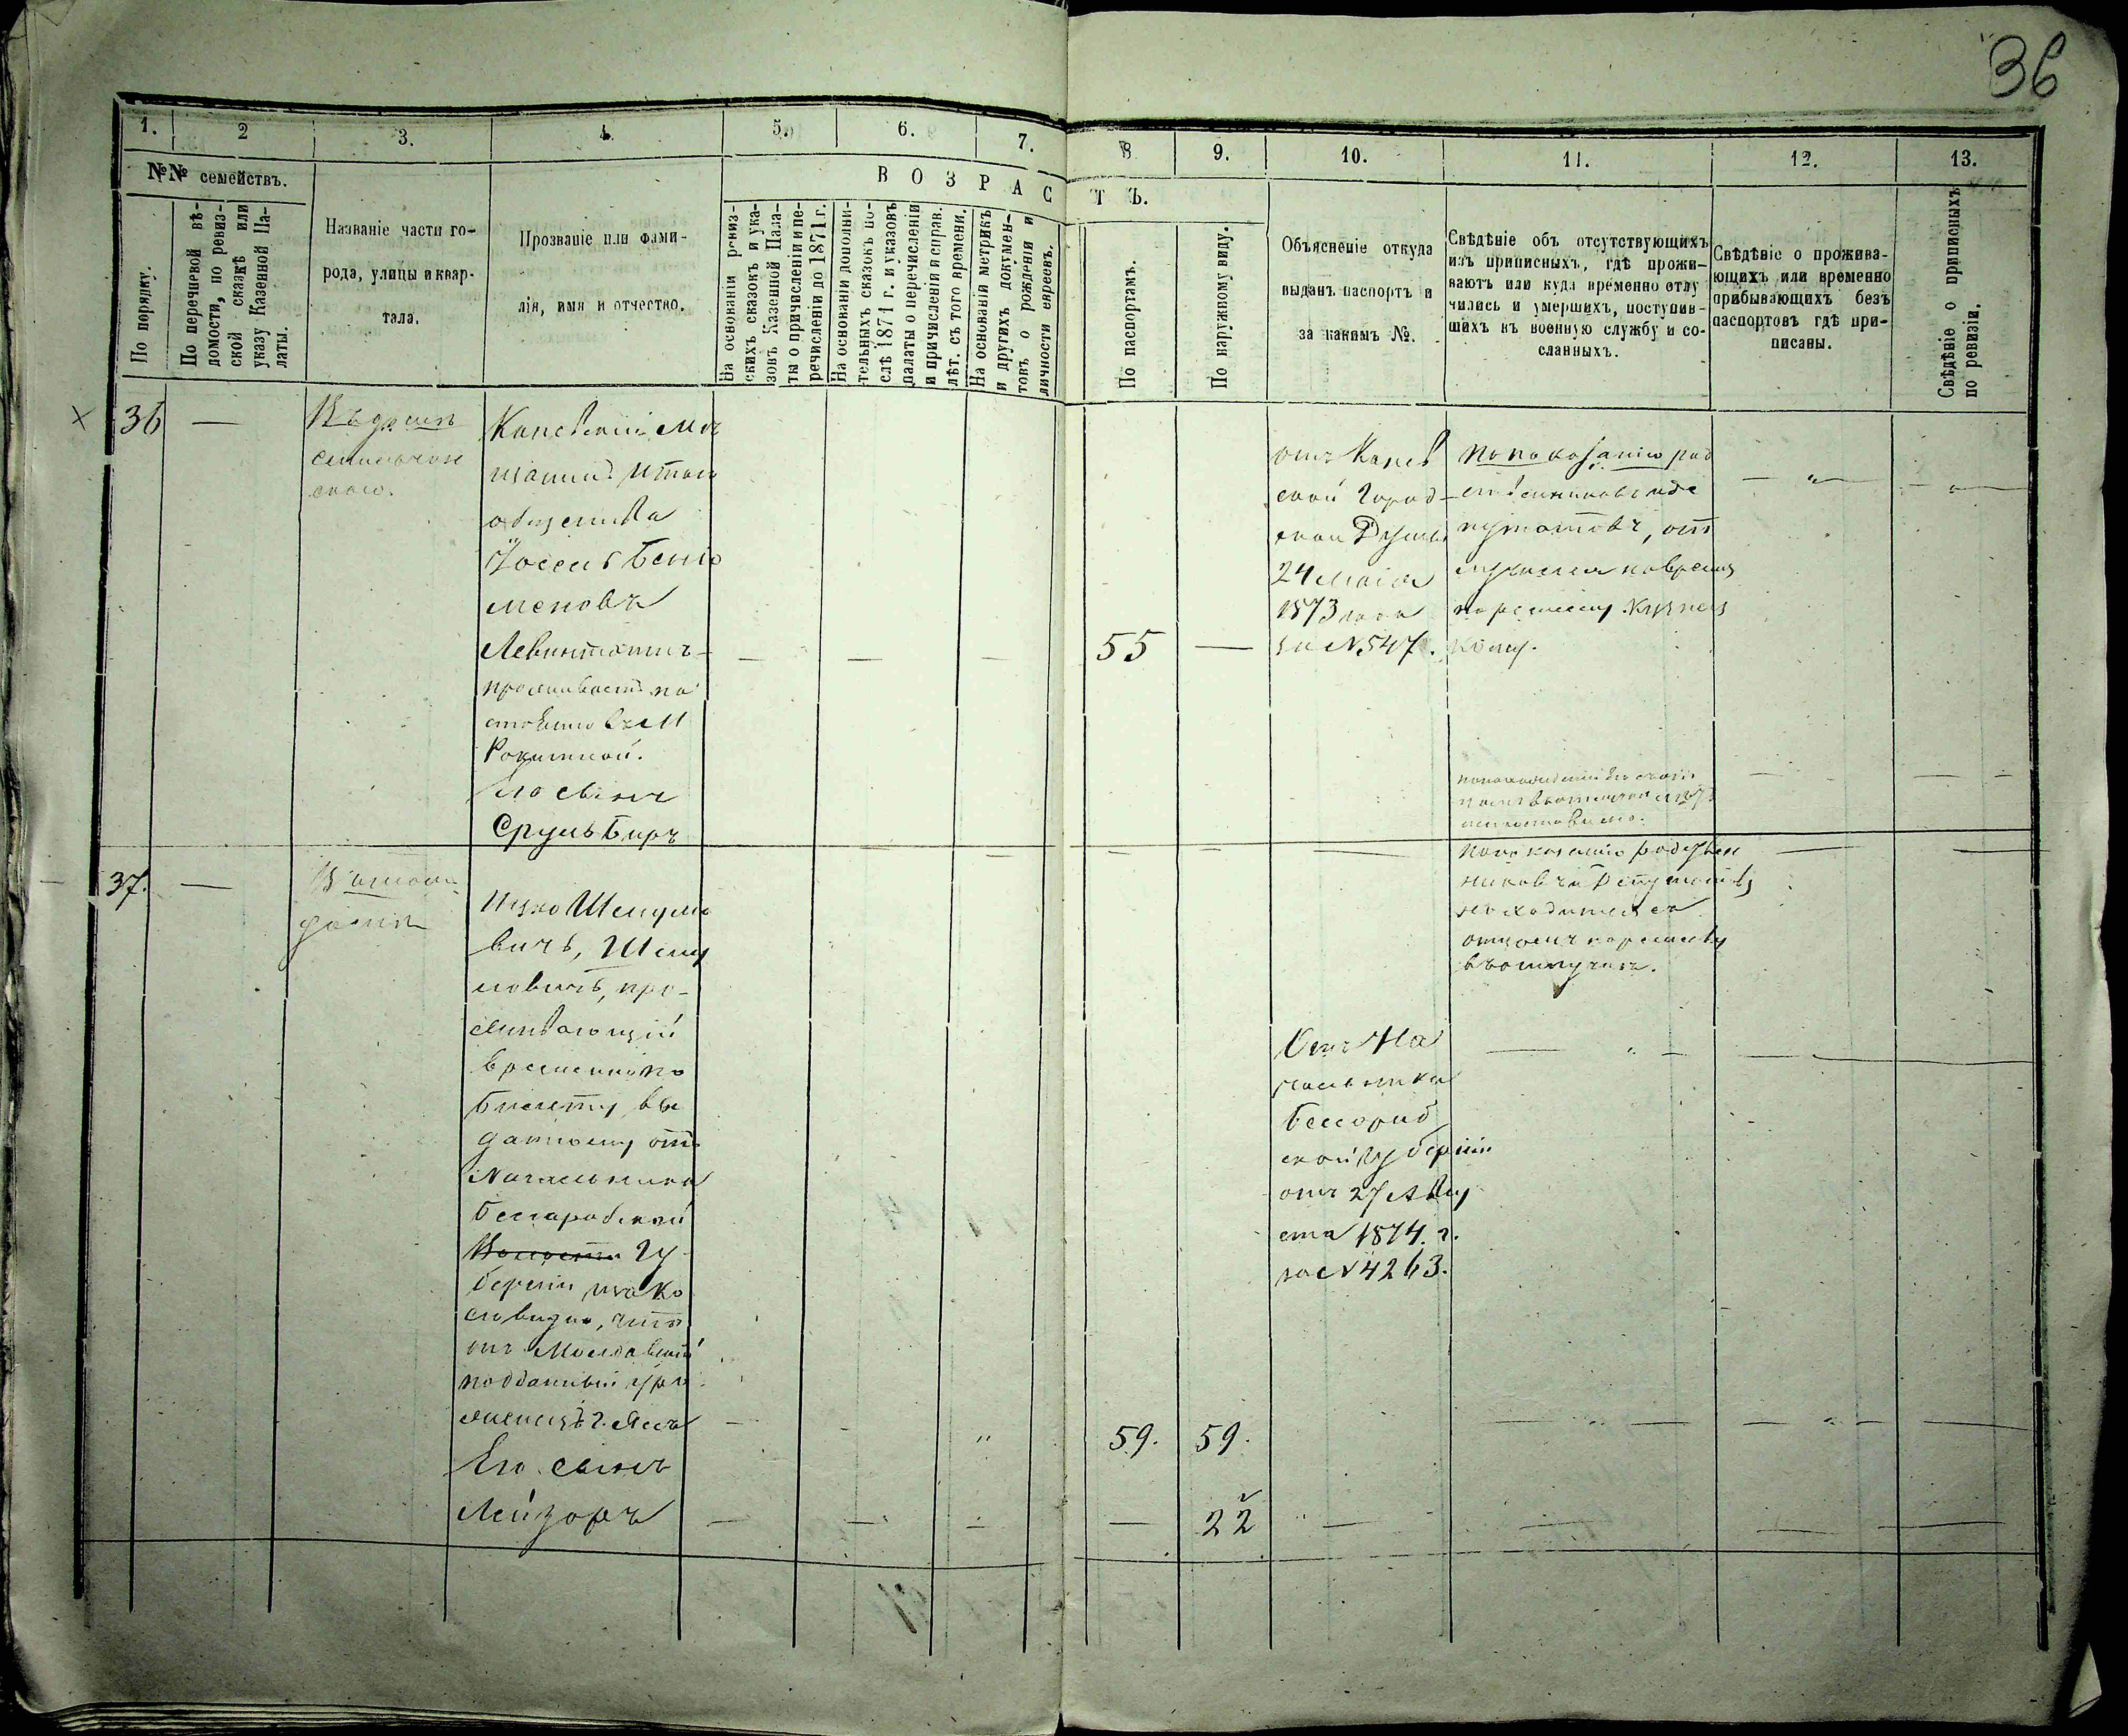 36
1. 2 3. 4. 5. 6. 7. 8 9. 10. 11. 12. 13.
№№ семействъ.
По порядку.
По перечневой вѣ-
домости, по ревиз-
ской сказкѣ или
указу Казенной Па-
латы.
Названіе части го-
рода, улицы и квар-
тала.
Прозваніе или фами-
лія, имя и отчество.
ВОЗРАСТЪ.
На основаніи ревиз-
скихъ сказокъ и ука-
зовъ Казенной Пала-
ты о причисленіи и пе-
речисленіи до 1871 г.
На основаніи дополни-
тельныхъ сказокъ по-
слѣ 1871 г. и указовъ
палаты о перечисленіи
и причисленіи и справ.
лѣт. съ того времени.
На основаніи метрикъ
и другихъ докумен-
товъ о рожденіи и
личности евреевъ.
По паспортамъ.
По наружному виду.
Объясненіе откуда
выданъ паспортъ и
за какимъ №.
Свѣдѣніе объ отсутствующихъ
изъ приписныхъ, гдѣ прожи-
ваютъ или куда временно отлу
чились и умершихъ, поступив-
шихъ въ военную службу и со-
сланныхъ.
Свѣдѣніе о прожива-
ющихъ или временно
прибывающихъ безъ
паспортовъ гдѣ при-
писаны.
Свѣдѣніе о приписныхъ
по ревизіи.
36
Каневскій Мѣ
щанинъ
общества
Иосель Беніа
меновъ
Левинтантъ
проживаетъ по
Рокитной.
Его сынъ
Сруль Беръ
55
отъ Канев
ской Город
ской Думы
24 маія
1873 года
за № 547.
По показанію род
ственниковъ и де
путатовъ, от
лучился на время
по ремеслу кузнец
кому.
37.
Ицко Шмуло
вичъ, Шму
ловичъ, про-
живающій
временно по
билету вы
данному отъ
Начальника
Бессарабской
Гу
берніи изъ ко
его видно, что
онъ Молдавскій
подданный уро
женецъ г. Яссъ
Его сынъ
Лейзоръ
59. 59.
22
Отъ На
чальника
Бессараб
ской губерніи
отъ 27 Авгу
ста 1874. г.
за № 4263.
По показанію родствен
никовъ и Депутатовъ
находится съ
отцомъ по ремеслу
въ отлучкѣ.